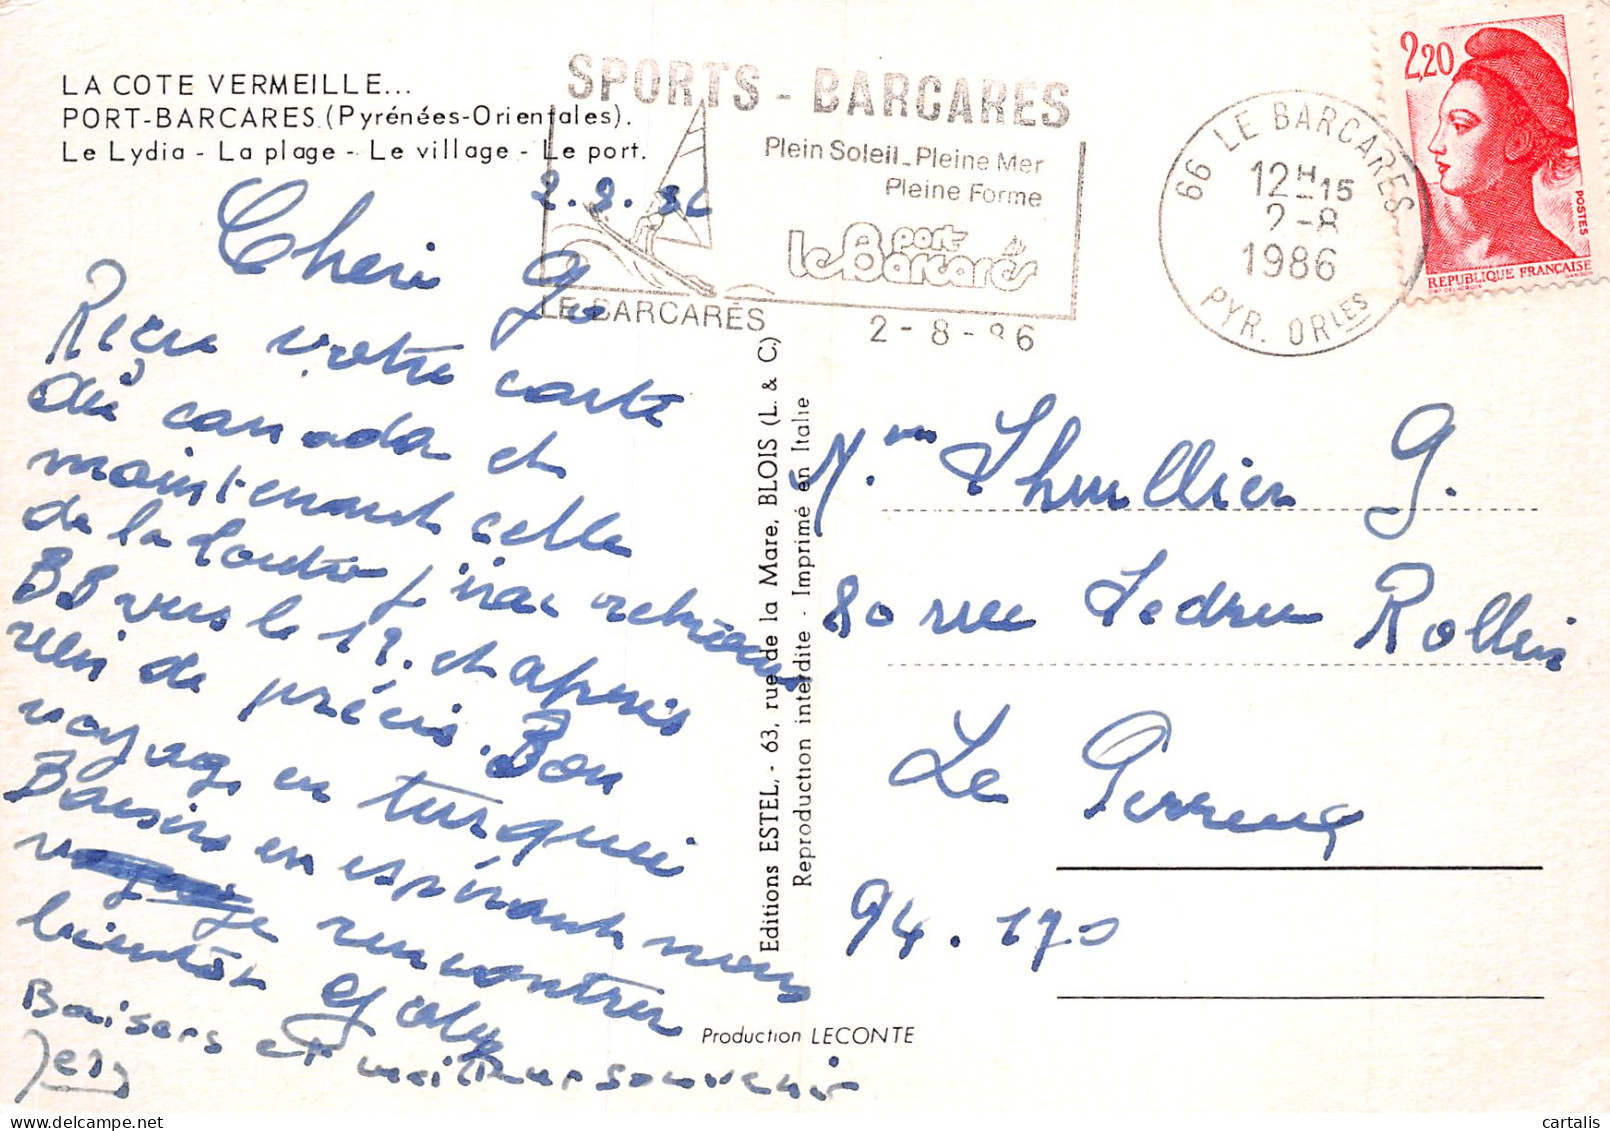 LA COTE VERMEILLE...
PORT-BARCARES (Pyrénées-Orientales).
Le Lydia - La plage - Le village - Le port.
SPORTS - BARCARES
Plein Soleil - Pleine Mer
Pleine Forme
le port
Barcarès
LE BARCARES
2-8-86
66 LE BARCARES
12H15
2-8
1986
PYR. ORLES
2,20
POSTES
REPUBLIQUE FRANÇAISE
Cheri
Reçu votre carte
du canada et
maintenant celle
de la
BB vers le 12. et apres
rien de précis. Bon
voyage en turquie
Baisers en espérant nous
rencontrer
bientôt
Baisers et meilleur souvenir
Editions ESTEL, - 63, rue de la Mare, BLOIS (L. & C.)
Reproduction interdite - Imprimé en Italie
Production LECONTE
Mme Thullier G.
80 rue Ledru Rollin
Le Perreux
94.170
cartalis